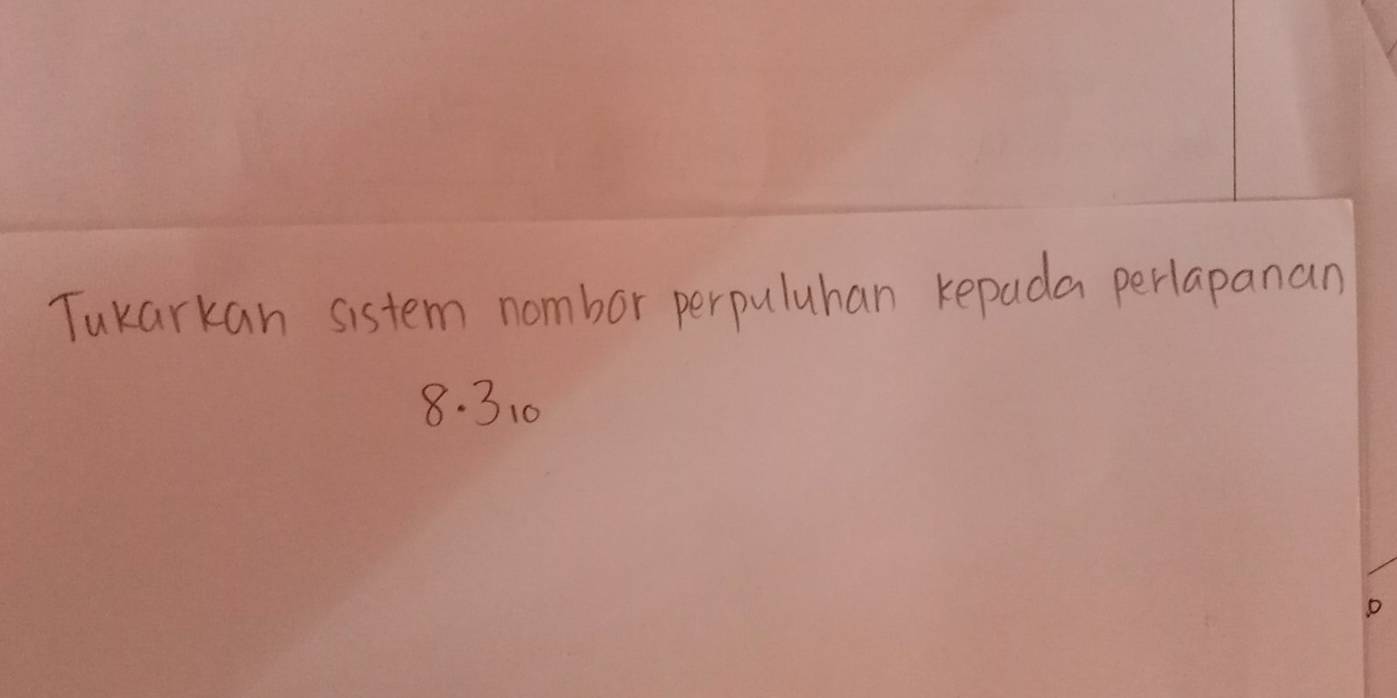 Tukarkan sistem nombor perpuluhan kepada perlapanan
8.3₁₀